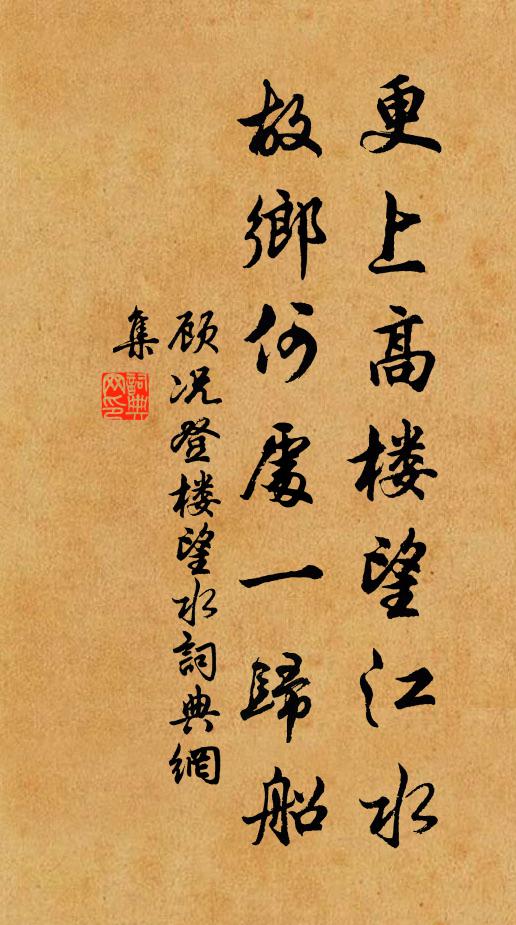 更上高楼望江水
故鄉何處一歸船
顾况登楼望水詞典網
集
詞典網印